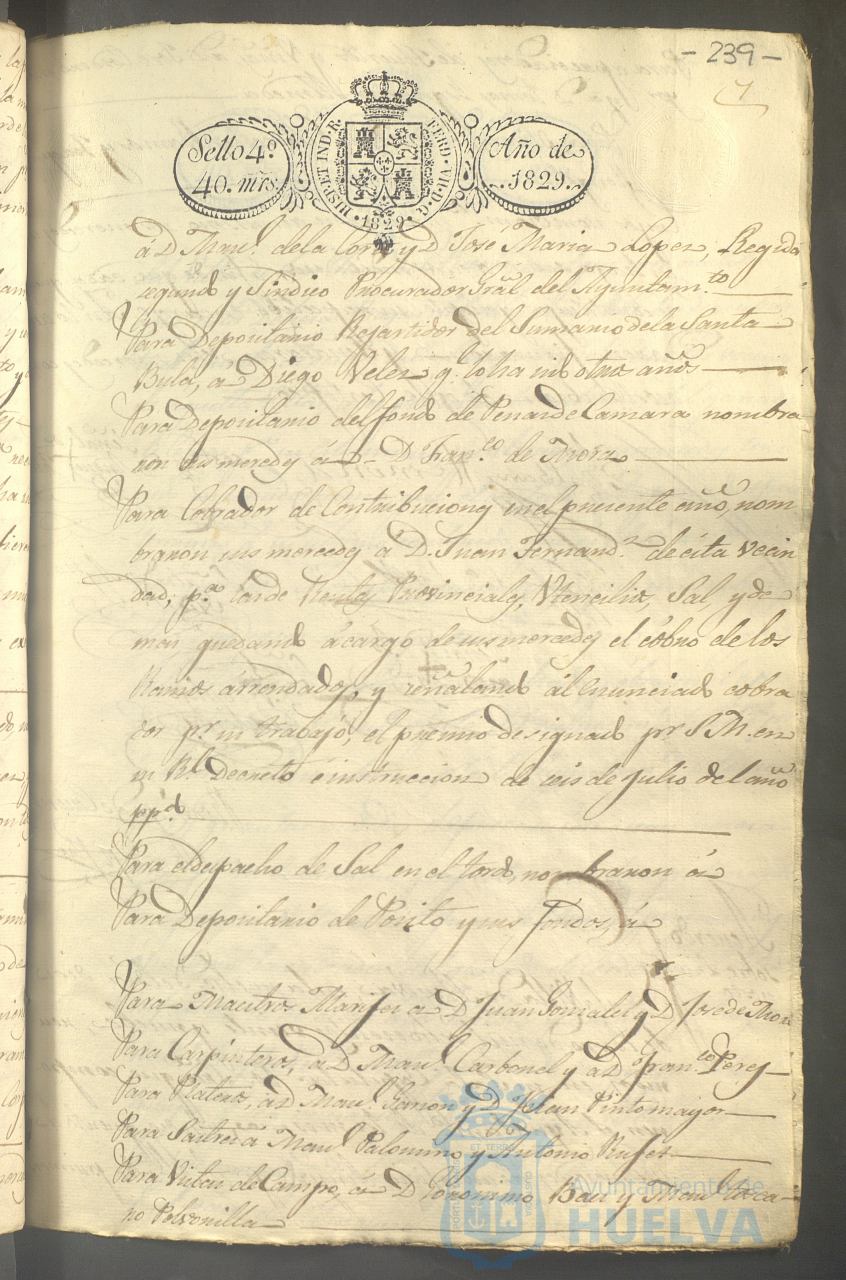 - 239 -
7
Sello 4º
40. mrs
HISP. ET IND. R.
FERD. VII. D. G.
1829
Año de
1829.
á D. Manl. de la Corte y D. José Maria Lopez, Regidor
segundo y Sindico Procurador Gral del Ayuntamto
Para Depositario Repartidor del Sumario de la Santa
Bula, a Diego Velez q. lo ha sido otros años
Para Depositario del fondo de Penas de Camara nombra-
ron sus mercedes á D. Franco de Mora
Para Cobrador de Contribuciones en el presente año, nom
braron sus mercedes a D. Juan Fernandz de esta vecin
dad, pa las de Rentas Provinciales, Utencilios, Sal, y de
mas quedando á cargo de sus mercedes el cobro de los
Ramos arrendados, y señalando al enunciado cobra
dor pr su trabajo, el premio designado pr S.M. en
su Rl Decreto é instruccion de seis de Julio del año
ppdo
Para el despacho de Sal en el tordo, nombraron á
Para Depositario de Posito y sus fondos, á
Para Maestros Alarifes a D. Juan Gonzalez y D. Jose de Mora
Para Carpinteros, a D. Manl. Carbonel y a D. Franco Perez
Para Plateros, á D. Manl. Garzon y D. Juan Pinto mayor
Para Sastres á Manl. Palomino y Antonio Rufet
Para Vistas de Campo, á D. Geronimo Bau y Manl Tosca-
no Polvonilla
Ayuntamiento de
HUELVA